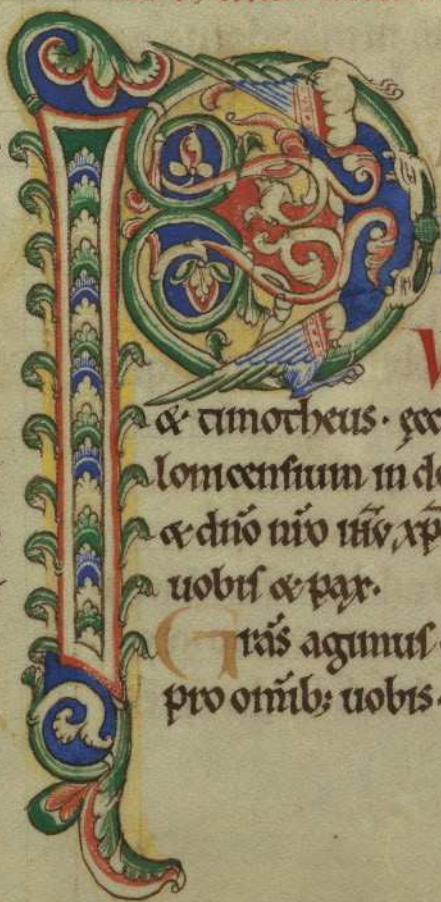 P
& timotheus· ęcc
lonicensium in dō
& dn̄o nr̄o ih̄u xp̄
uobis & pax.
Grās agimus
pro om̄ib; uobis·